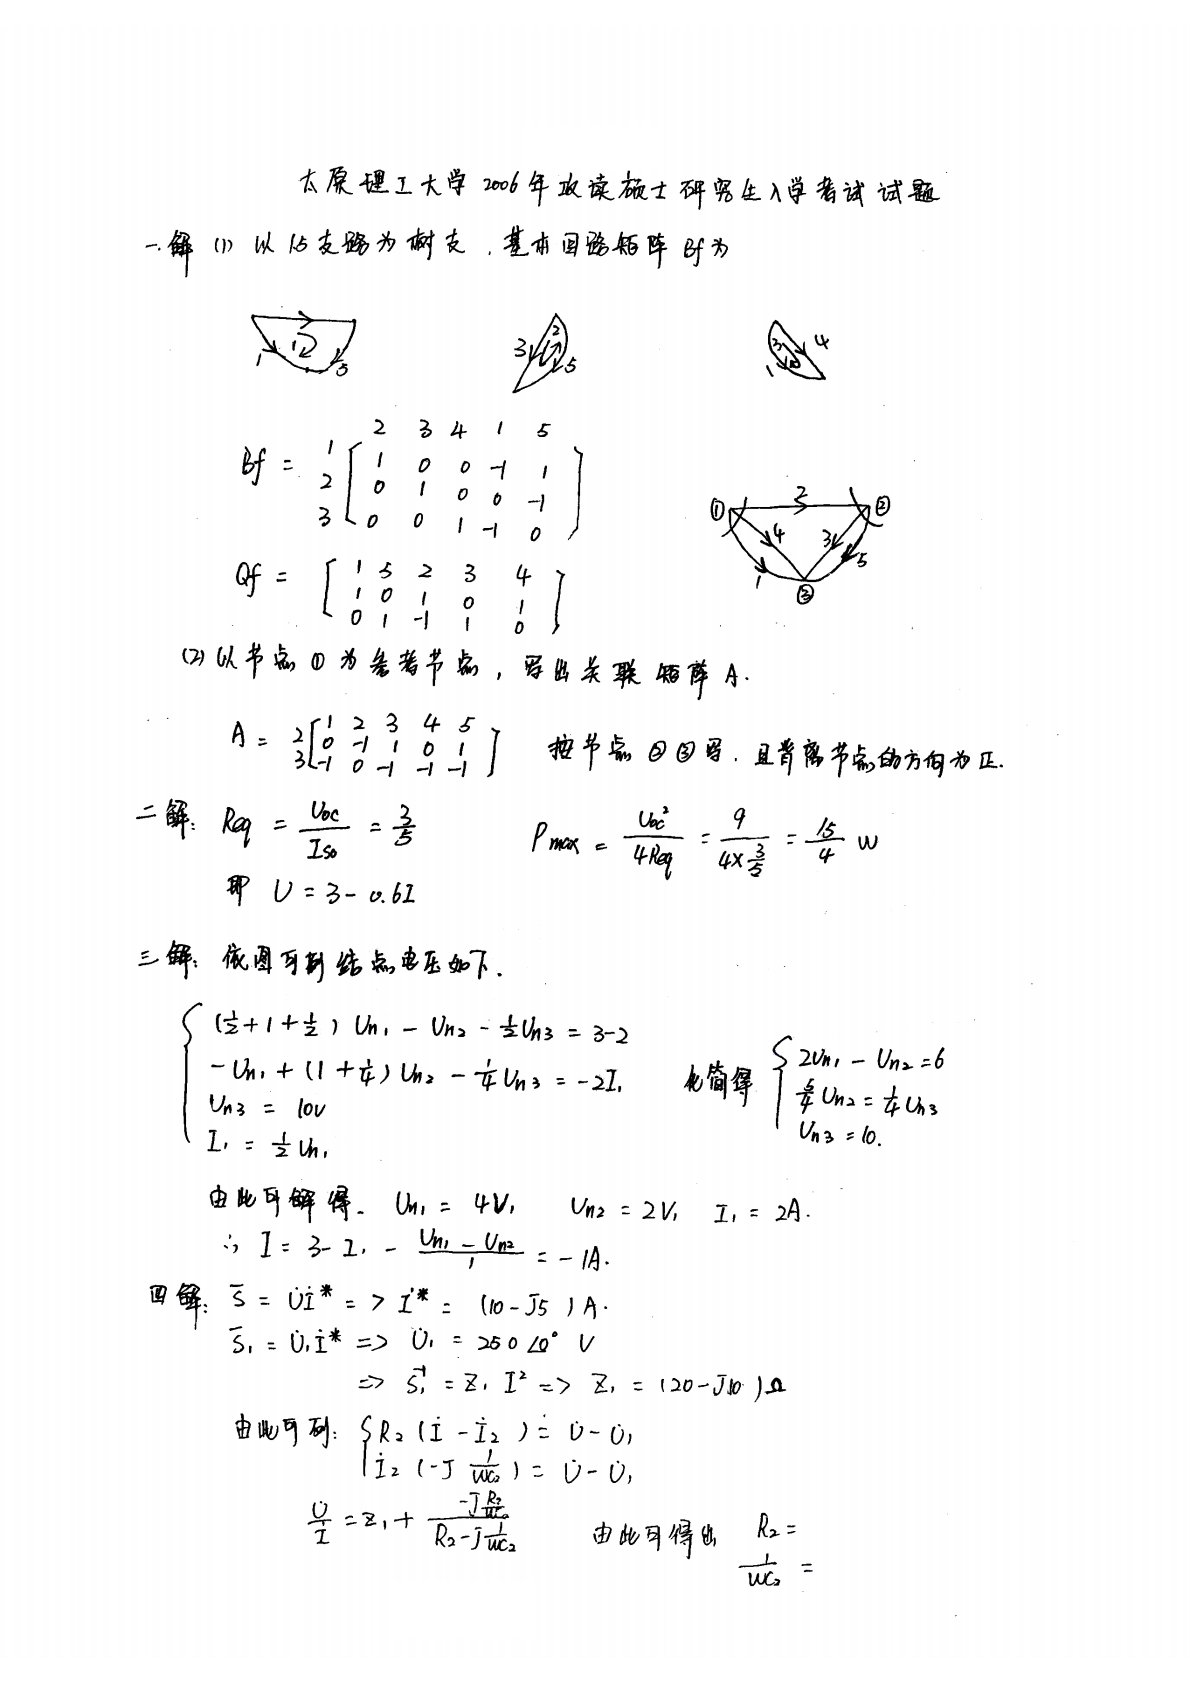 太原理工大学2006年攻读硕士研究生入学考试试题
一.解 (1) 以15支路为树支.基本回路矩阵Bf为
1 1 5
3 2 5
1 3 4
2 3 4 1 5
Bf = 1 [ 1 0 0 -1 1
2 0 1 0 0 -1
3 0 0 1 -1 0 ]
① 2 ② 4 3 1 5 ③
Qf = [ 1 5 2 3 4
1 0 1 0 1
0 1 -1 1 0 ]
(2) 以节点①为参考节点,写出关联矩阵A.
1 2 3 4 5
A = 2 [ 0 -1 1 0 1
3 -1 0 -1 -1 -1 ] 按节点②③写.且背离节点的方向为正.
二解: Req = Uoc/Iso = 3/5 Pmax = Uoc²/4Req = 9/(4×3/5) = 15/4 W
即 U = 3 - 0.6I
三解: 依图可列结点电压如下.
(1/2+1+1/2) Un1 - Un2 - 1/2Un3 = 3-2
-Un1 + (1+1/4) Un2 - 1/4 Un3 = -2I1
Un3 = 10V
I1 = 1/2 Un1
化简得 2Un1 - Un2 = 6
5/4 Un2 = 1/4 Un3
Un3 = 10.
由此可解得. Un1 = 4V, Un2 = 2V, I1 = 2A.
∴ I = 3 - I1 - (Un1 - Un2)/1 = -1A.
四解: S̄ = U̇İ* => İ* = (10 - J5) A.
S̄1 = U̇1İ* => U̇1 = 250∠0° V
=> S̄1 = Z1 I² => Z1 = (20 - J10) Ω
由此可列: R2 (İ - İ2) = U̇ - U̇1
İ2 (-J 1/WC2) = U̇ - U̇1
U̇/İ = Z1 + (-J R2/WC2)/(R2 - J 1/WC2) 由此可得出 R2 =
1/WC2 =